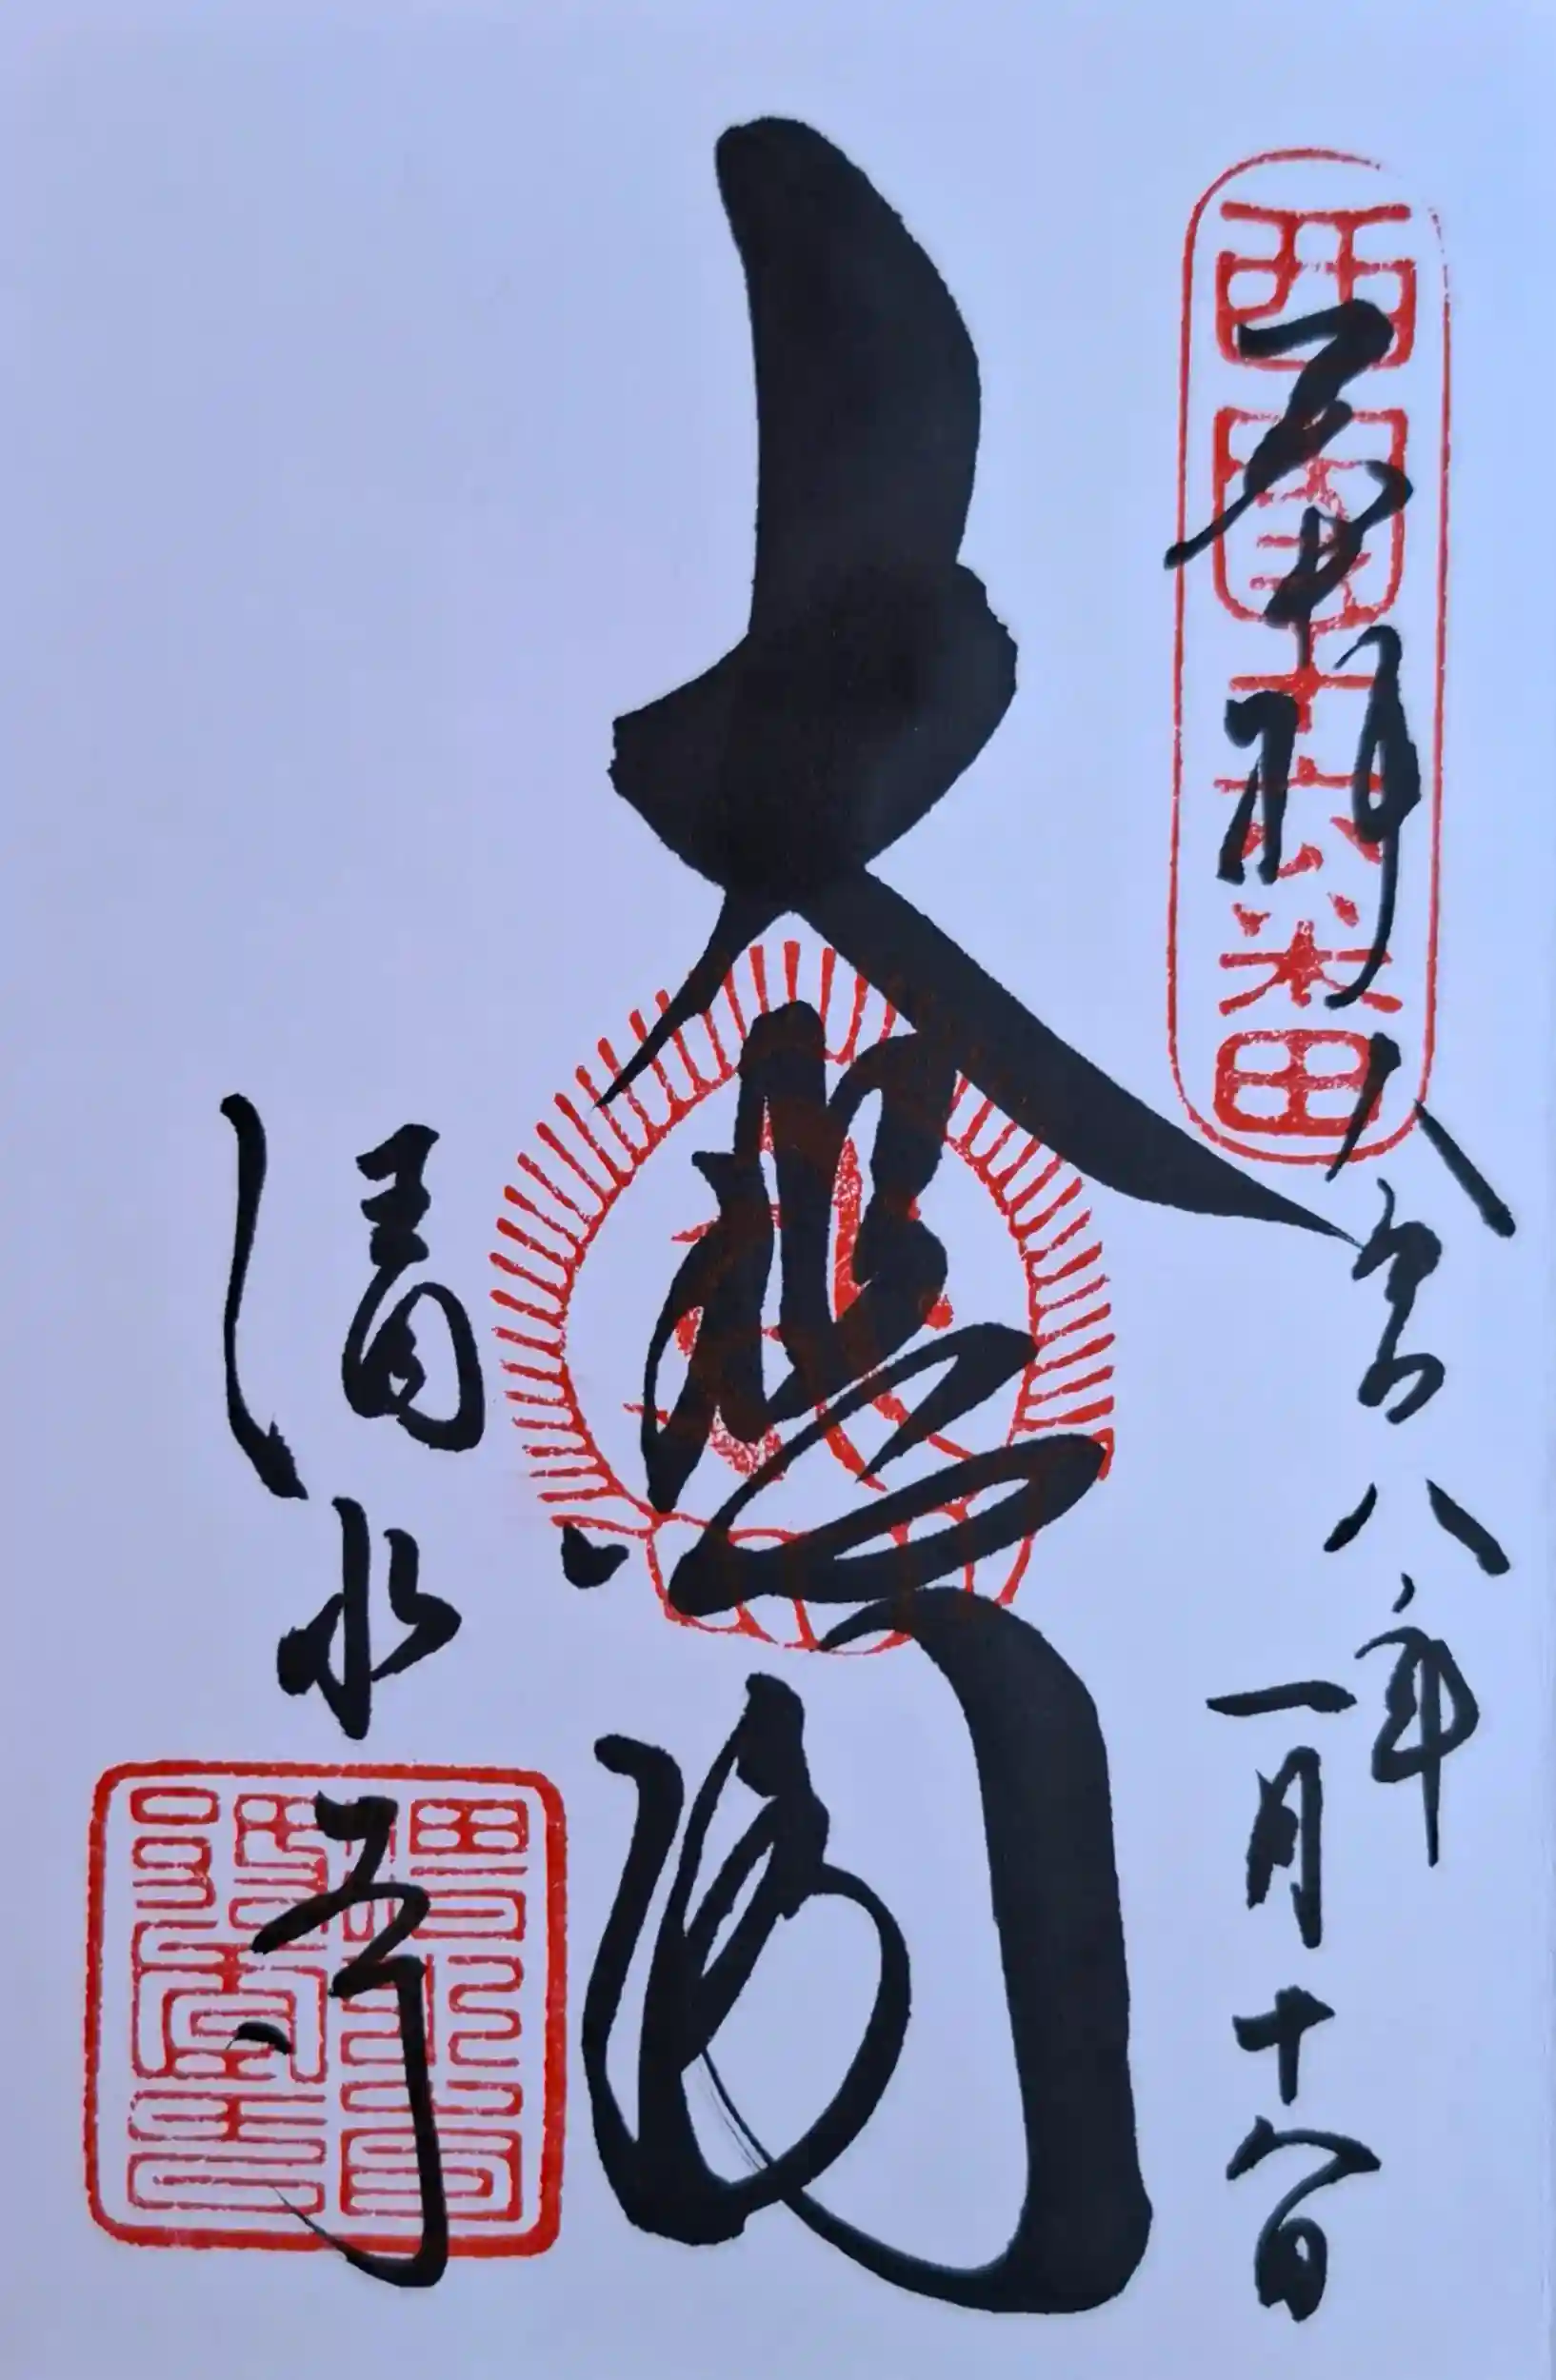 西國十六番
奉拝
令和八年
一月十八日
大悲閣
清水寺